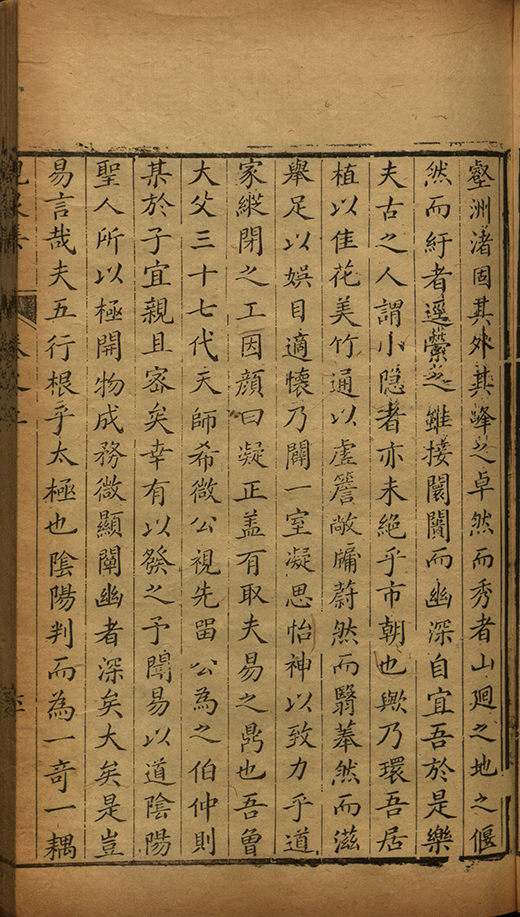 壑洲渚固其外其峰之卓然而秀者山廻之地之偃
然而紆者逕縈之雖接闤闠而幽深自宜吾於是樂
夫古之人謂小隐者亦未絶乎市朝也歟乃環吾居
植以佳花美竹通以虚簷敞牖蔚然而翳菶然而滋
舉足以娛目適懷乃闢一室凝思怡神以致力乎道
家縱閉之工因顔曰凝正盖有取夫易之鼎也吾曾
大父三十七代天師希微公視先畱公為之伯仲則
某於子宜親且宻矣幸有以發之予聞易以道隂陽
聖人所以極開物成務微顯闡幽者深矣大矣是豈
易言哉夫五行根乎太極也隂陽判而為一竒一耦